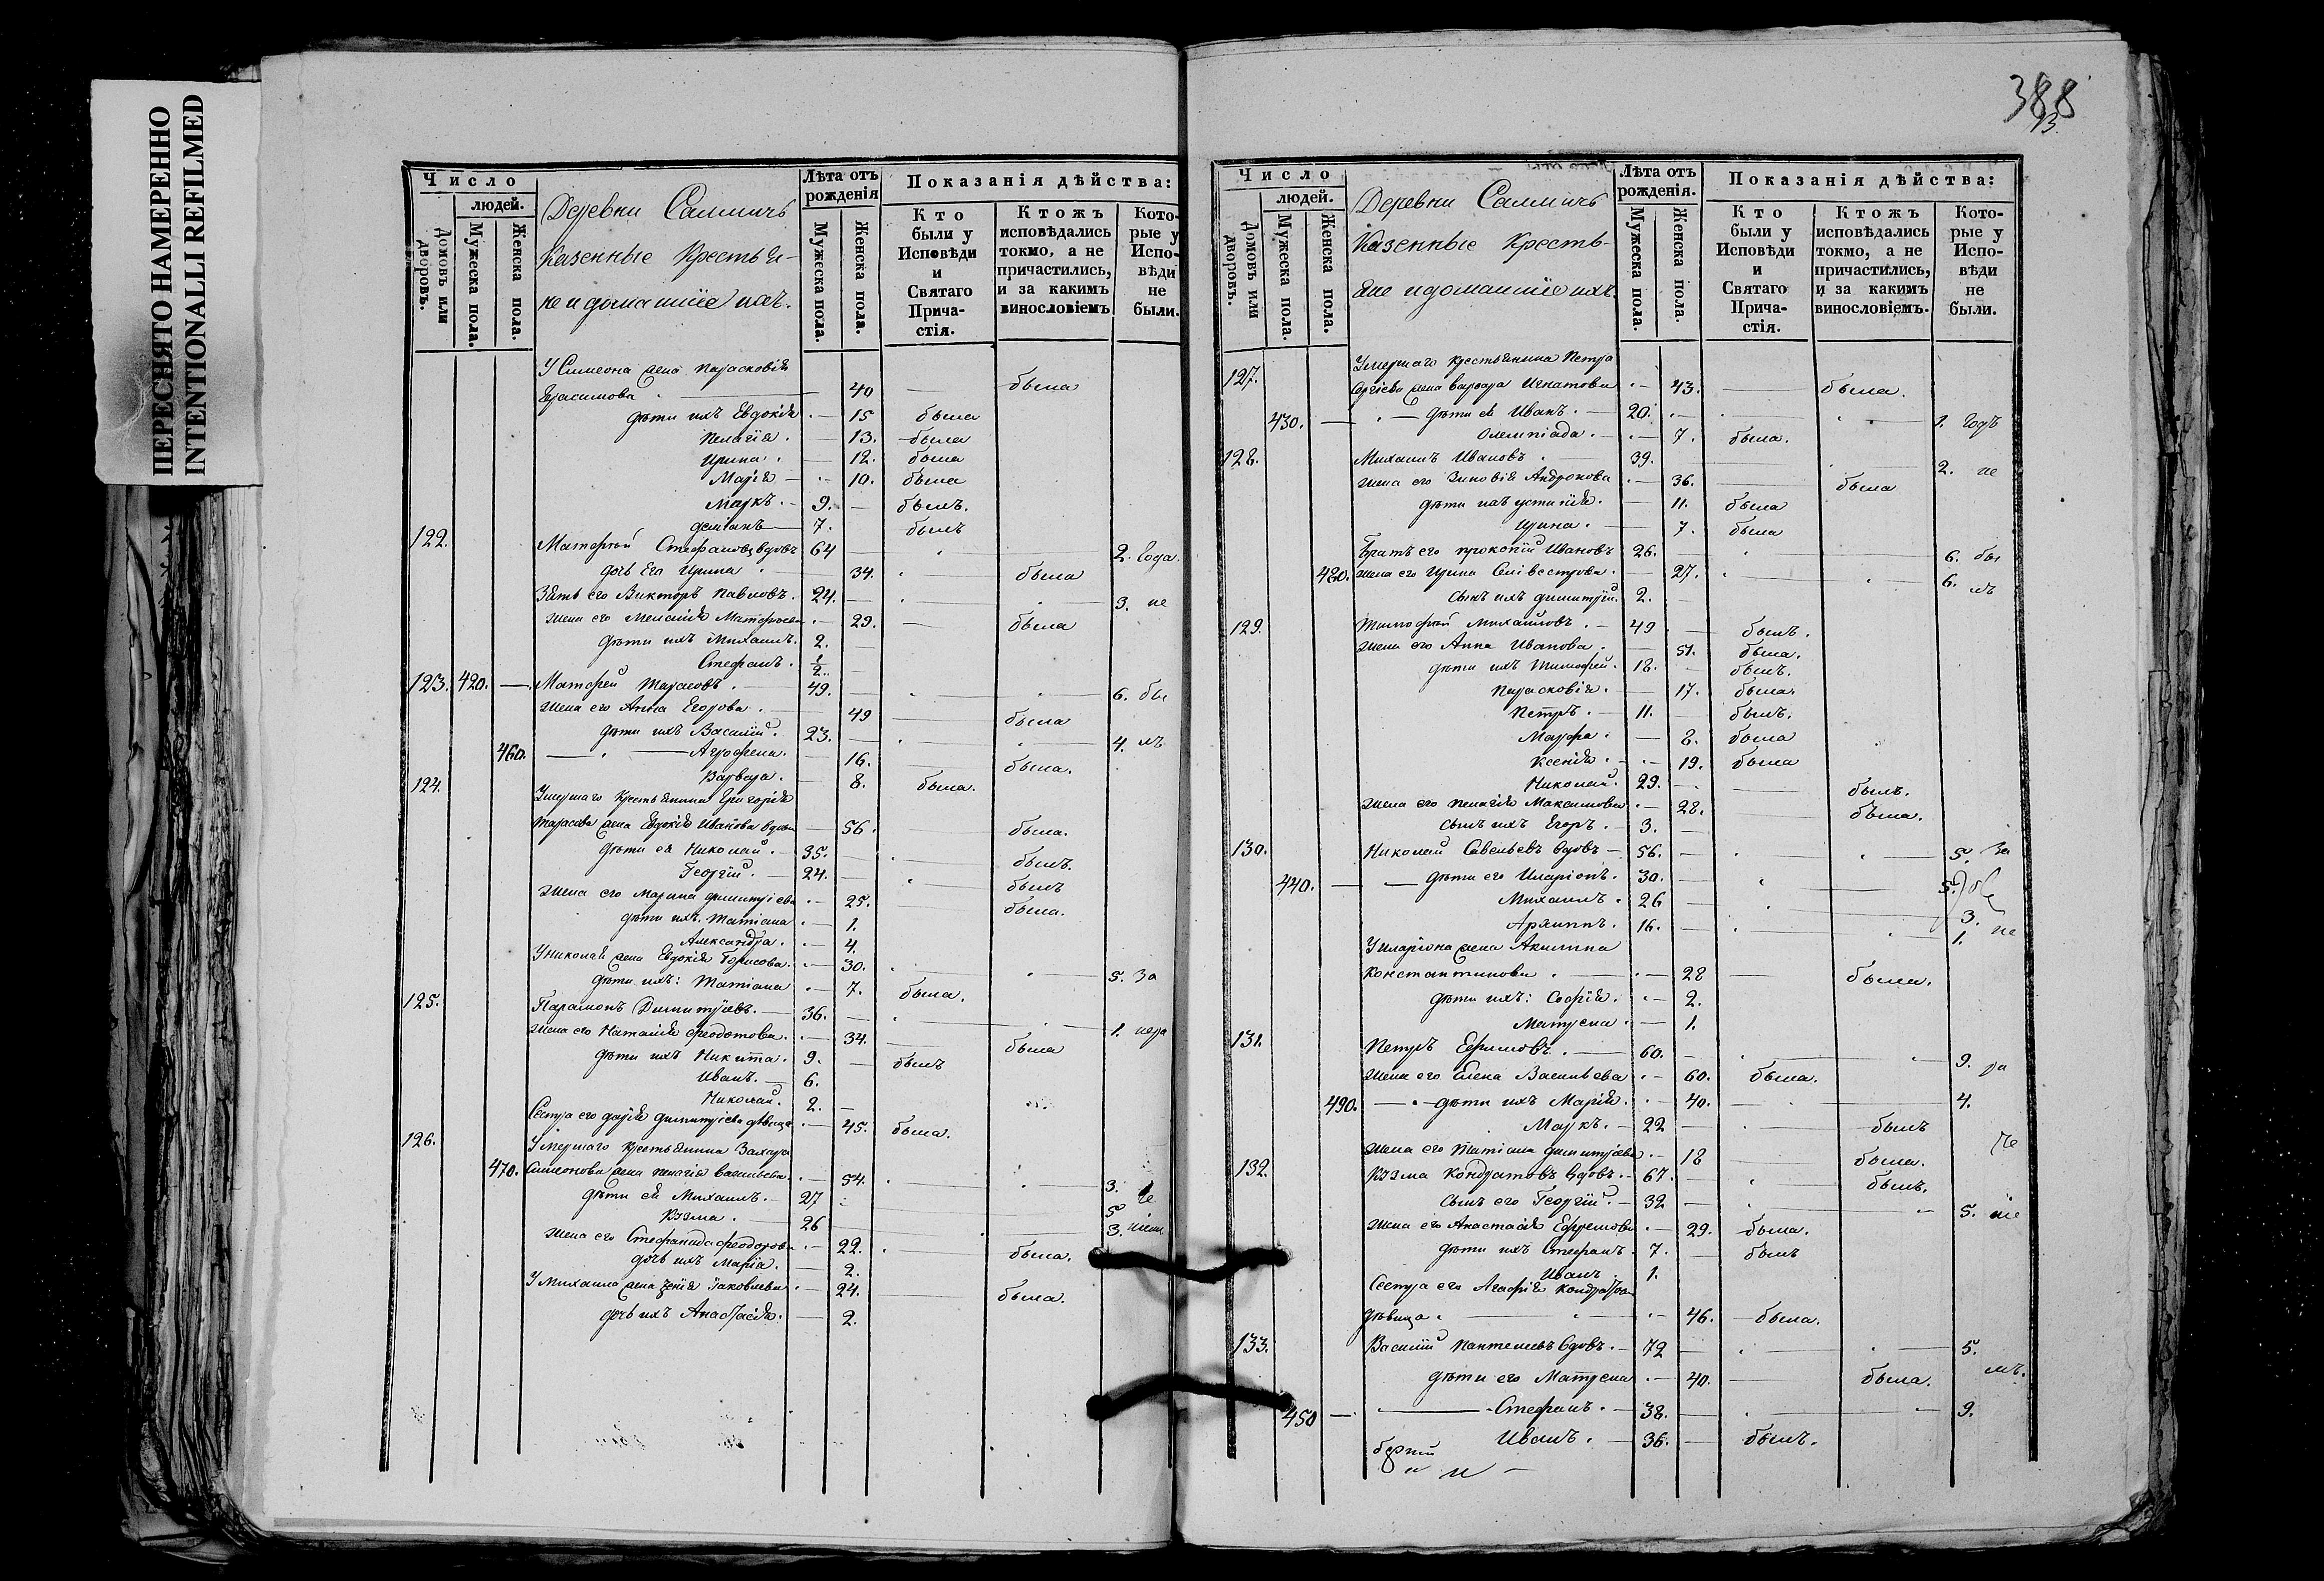 ПЕРЕСНЯТО НАМЕРЕННО
INTENTIONALLI REFILMED
Число
людей.
Домовъ или дворовъ.
Мужеска пола.
Женска пола.
Деревни
Казенные Крестья-
не и домашніе ихъ.
Лѣта отъ рожденія
Мужеска пола.
Женска пола.
Показанія дѣйства:
Кто были у Исповѣди и Святаго Причастія.
Ктожъ исповѣдались токмо, а не причастились, и за какимъ винословіемъ
Которые у Исповѣди не были.
У Симеона жена Парасковія
Герасимова — 40 — была
дѣти ихъ Евдокія — 15 была
Пелагія — 13. была
Ирина — 12. была
Марія — 10. была
Маркъ 9. — былъ.
7. былъ
122. Матөей Стефановъ вдовъ 64 — 2. года.
дочь Его Ирина — 34. была
Зять его Викторъ Павловъ. 24. — 3. не
жена его Меланія Матөеева — 29. была
дѣти ихъ Михаилъ. 2. —
Стефанъ. 1/2 —
123. 420. — Матөей Тарасовъ. 49. — 6. бы
жена его Анна Егорова. — 49 была
дѣти ихъ Василій. 23. — 4. лъ
460. — Агрофена. — 16. была.
Варвара. — 8. была.
124. Умершаго Крестьянина Григорія
Тарасова жена Евдокія Иванова вдова — 56. была.
дѣти ея Николай. 35. — былъ.
Георгій. 24. — былъ
жена его Марина Димитріева — 25. была.
дѣти ихъ. Татіана — 1.
Александра. — 4.
У Николая жена Евдокія Борисова. — 30. — 5. за
дѣти ихъ: Татіана — 7. была.
125. Парамонъ Димитріевъ. 36. — 1. нера
жена его Наталія Өеодотова. — 34. была
дѣти ихъ Никита. 9. — былъ
Иванъ. 6.
Николай. 2. —
Сестра его Дарія Димитріева дѣвица — 45. была.
126. Умершаго Крестьянина Захара
470. Симеонова жена Пелагія Васильева. — 54. — 3.
дѣти ея Михаилъ. 27 5
Кузма. 26 — 3.
жена его Стефанида Өеодорова — 22. была.
дочь ихъ Марія. — 2.
У Михаила жена Іаковлева — 24. была.
дочь ихъ Анастасія. — 2.
388
Число
людей.
Домовъ или дворовъ.
Мужеска пола.
Женска пола.
Деревни
Казенные Кресть-
яне и домашніе ихъ.
Лѣта отъ рожденія.
Мужеска пола.
Женска пола.
Показанія дѣйства:
Кто были у Исповѣди и Святаго Причастія.
Ктожъ исповѣдались токмо, а не причастились, и за какимъ винословіемъ.
Которые у Исповѣди не были.
127. Умершаго Крестьянина Петра
Сергіева жена Варвара Игнатова — 43. — была.
430. — дѣти ея Иванъ. 20. — 1. годъ
Олимпіада. — 7. была.
128. Михаилъ Ивановъ. 39. — 2. не
жена его Зиновія Андронова — 36. — была
дѣти ихъ Устинія. — 11. была
Ирина. — 7. была
Братъ его Прокопій Ивановъ 26. — 6. бы
480. жена его Ирина Силвестрова. — 27. — 6. лъ
сынъ ихъ Димитрій. 2. —
129. Тимофей Михайловъ. 49 — былъ.
жена его Анна Иванова. — 51. была.
дѣти ихъ Тимофей. 18. — былъ.
Параскoвія. — 17. была
Петръ. 11. — былъ.
Марфа. — 8. была
Ксенія. — 19. была
Николай. 29. — былъ.
жена его Пелагія Максимова — 28. была.
сынъ ихъ Егоръ. 3. —
130. Николай Савельевъ вдовъ 56. — 5. за
440. — дѣти его Иларіонъ. 30. — 5.
Михаилъ. 26 — 3.
Архипъ. 16. — 1. не
У Иларіона жена Акилина
Константинова — 28 — была.
дѣти ихъ: Софія. — 2.
Матрена — 1.
131. Петръ Ефимовъ. 60. — 9.
жена его Елена Васильева — 60. была.
490. — дѣти ихъ Марія. — 40. — 4.
Маркъ. 22 — былъ
жена его Татіана Димитріева — 18 была.
132. Кузма Кондратовъ вдовъ. 67. — былъ.
сынъ его Георгій. 32 — 5. ніе
жена его Анастасія Ефремова — 29. была.
дѣти ихъ Стефанъ. 7. — былъ
Иванъ. 1.
Сестра его Агафія
дѣвица — 46. была.
133. Василій вдовъ. 72 — 5.
дѣти его Матрена — 40. была.
450 — Стефанъ. 38. — 9.
Иванъ. 36. — былъ.